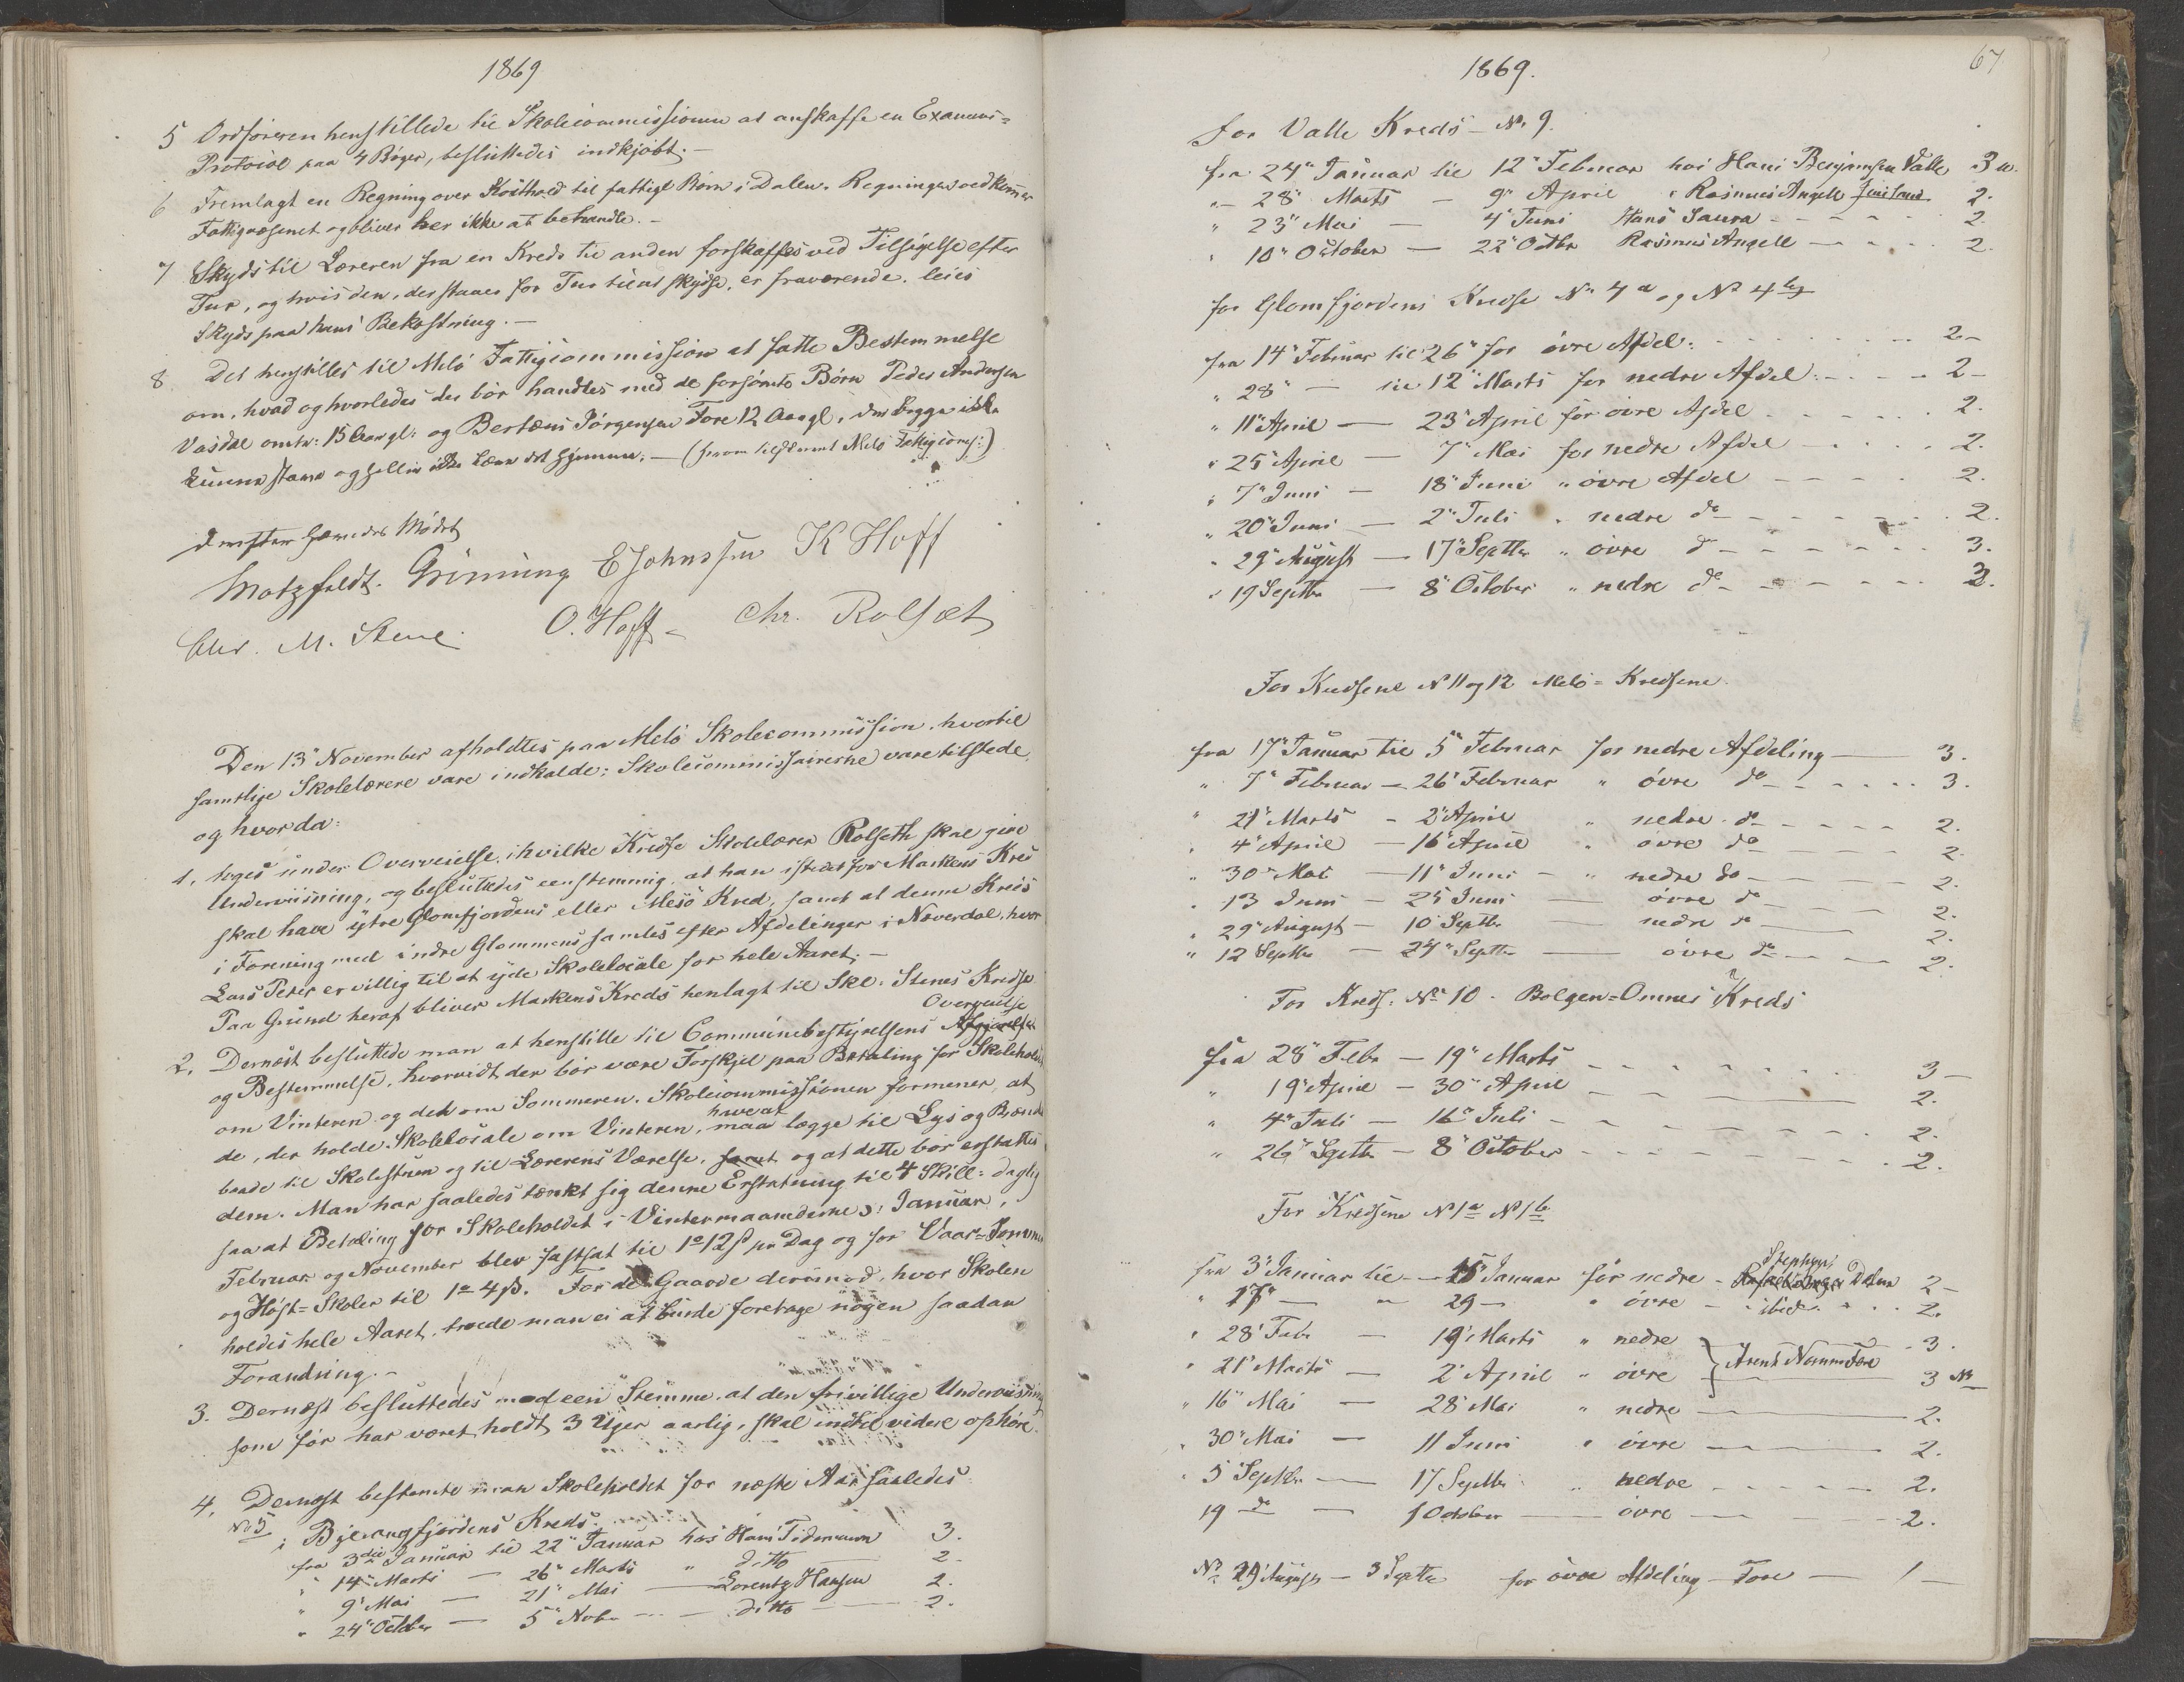 1869
5 Ordføreren henstillede til Skolecommissionen at anskaffe en Examens-
Protocol paa 4 Bøger, besluttedes indkjøbt. -
6 Fremlagt en Regning over Kosthold til fattige Børn i Dalen. Regningen vedkommer
Fattigvæsenet og bliver her ikke at behandle. -
7 Skyds til Læreren fra en Kreds til anden forskaffes ved Tilsigelse efter
Tur, og hvis den, der staaer for Tur til at skydse, er fraværende, leies
Skyds paa hans Bekostning. -
8 Det henstilles til Melø Fattigcommission at fatte Bestemmelse
om, hvad og hvorledes der bør handles med de forsømte Børn Peder Andersen
Vasdal omtr: 15 Aar gl: og Bertæus Jørgensen Fore 12 Aar gl, der begge ikke
kunne stave og heller ikke lære det hjemme. - (
Derefter hævedes Mødet
Motzfeldt. Grønning E Johnssen K Hoff
Chr. M. Stene. O. Hoff - Chr. Rolsæt
Den 13" November afholdtes paa Melø Skolecommission, hvortil
samtlige Skolelærere vare indkaldte; Skolecommissairerne vare tilstede,
og hvor da:
1, toges under Overveielse, i hvilke Kredse Skolelærer Rolseth skal give
Underviisning, og besluttedes eenstemmig, at han istedetfor Markens Kreds
skal have ytre Glomfjordens eller Mesø Kred, samt at denne Kreds
i Forening med indre Glommens samles efter Afdelinger i Næverdal, hvor
Lars Peter er villig til at yde Skolelocale for hele Aaret. -
Paa Grund heraf bliver Markens Kreds henlagt til Skl. Stenes Kredse
Overveielse
2, Dernæst besluttede man at henstille til Communebestyrelsens Afgjørelse
og Bestemmelse, hvorvidt der bør være Forskjel paa Betaling for Skoleholdet
om Vinteren og det om Sommeren. Skolecommissionen formener, at
have at
de, der holde Skolelocale om Vinteren, maa lægge til Lys og Brænde
baade til Skolestuen og til Lærerens Værelse, samt og at dette bør erstattes
dem. Man har saaledes tænkt sig denne Erstatning til 4 Skill: daglig
saa at Betaling for Skoleholdet i Vintermaanederne ɔ: Januar,
Februar og November blev fastsat til 1o 12 ß pr Dag og for Vaar- Sommer
og Høst-Skoler til 1o 4 ß. For de Gaarde derimod, hvor Skolen
holdes hele Aaret, troede man ei at burde foretage nogen saadan
Forandring. -
3. Dernæst besluttedes med een Stemme, at den frivillige Underviisning
som før har været holdt 3 Uger aarlig, skal indtil videre ophøre.
4, Dernæst bestemte man Skoleholdet for næste Aar saaledes
No 5 i Bjerangfjordens Kreds
fra 3die Januar til 22" Januar hos Hans Tidemann 3.
" 14" Marts - 26" Marts " ditto 2.
" 9" Mai - 21" Mai - Lorentz Hansen 2.
" 24" October - 5" Nobr - ditto 2.
67
1869.
For Valle Kreds - No 9.
fra 24" Januar til 12" Februar hos Hans Benjamsen Valle 3 u.
" 28" Marts - 9" April " Rasmus Angell 2.
" 23" Mai - 4" Juni Hans Saura 2.
" 10" October - 22" Octbr Rasmus Angell 2.
for Glomfjordens Kredse No 4 a og No 4 b
fra 14" Februar til 26" for øvre Afdel: 2 -
" 28" - til 12" Marts for nedre Afdel: 2 -
" 11" April - 23" April for øvre Afdel 2.
" 25" April - 7" Mai for nedre Afdel 2.
" 7" Juni - 18" Juni " øvre Afdel 2.
" 20" Juni - 2" Juli " nedre do 2.
" 29" August - 17" Septbr " øvre do 3.
" 19 Septbr - 8" October " nedre do 3.
For Kredsene N 11 og 12 Melø-Kredsene.
fra 17" Januar til 5" Februar for nedre Afdeling 3.
" 7" Februar - 26" Februar " øvre do 3.
" 21" Marts - 2" April " nedre do 2.
" 4" April - 16" April " øvre do 2.
" 30" Mai - 11" Juni - " nedre do 2.
" 13 Juni - 25 Juni - øvre do 2.
" 29" August - 10" Septbr - nedre do 2.
" 12 Septbr - 24" Septbr - øvre do 2.
For Kreds: No 10 - Bolgen-Omnes Kreds
fra 28" Febr - 19" Marts 3 -
" 19" April - 30" April 2.
" 4" Juli - 16" Juli 2.
" 26" Septbr - 8" October 2.
For Kredsene N 1 a N 1 b
fra 3" Januar til - 15" Januar for nedre - Dalen 2 -
" 17" - " 29 - " øvre - ibid 2.
" 28" Febr - 19" Marts " nedre 3.
" 21" Marts - 2" April " øvre Arent Fore 3
" 16" Mai - 28" Mai " nedre 2.
" 30" Mai - 11 Juni " øvre 2.
" 5 Septbr - 17 Septbr " nedre 2.
19 do - 1 October - øvre 2.
29 August - 3 Septbr for øvre Afdeling - Fore - 1 -